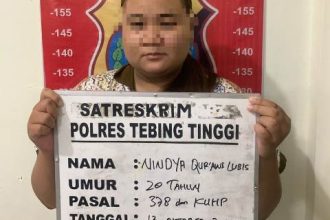 -155 -155
-150 -150
-145 -145
-140 -140
-135 -135
-130
SATRESKRIM
POLRES TEBING TINGGI
NAMA : NINDYA QUR'ANI LUBIS
UMUR : 20 TAHUN
PASAL : 378 dan KUHP
TANGGAL : 13